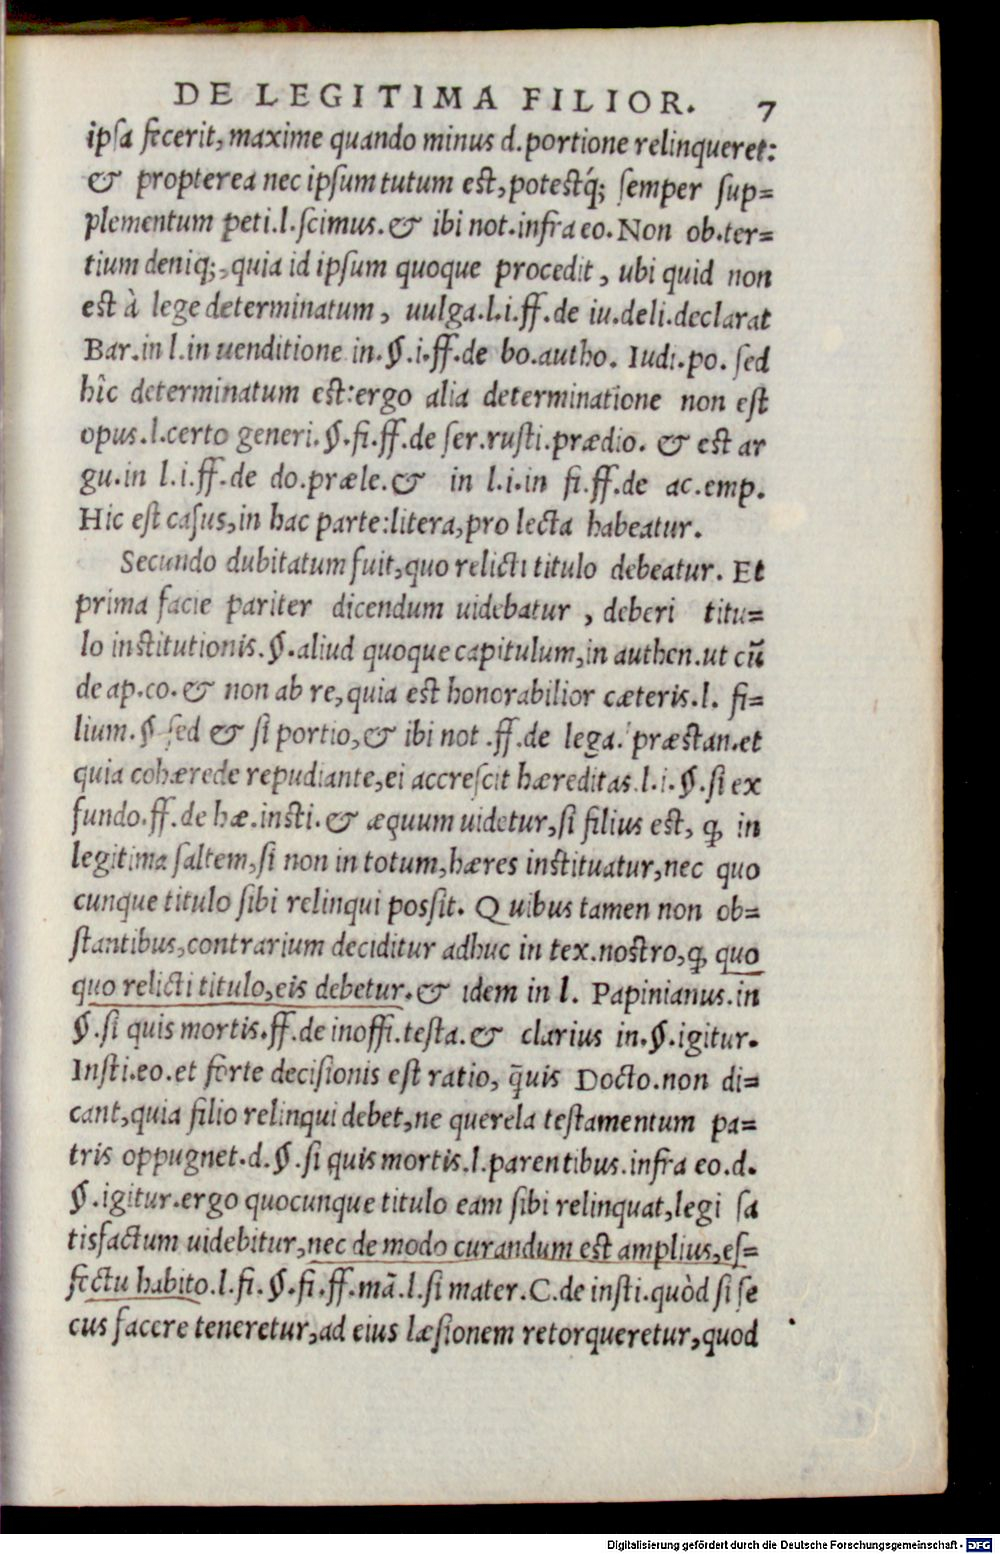 DE LEGITIMA FILIOR. 7
ipsa fecerit, maxime quando minus d.portione relinqueret:
& propterea nec ipsum tutum est, potestq́; semper sup=
plementum peti.l.scimus.& ibi not.infra eo.Non ob.ter=
tium deniq;, quia id ipsum quoque procedit, ubi quid non
est à lege determinatum, uulga.l.i.ff.de iu.deli.declarat
Bar.in l.in uenditione in.§.i.ff.de bo.autho. Iudi.po. sed
hîc determinatum est:ergo alia determinatione non est
opus.l.certo generi.§.fi.ff.de ser.rusti.prædio. & est ar
gu.in l.i.ff.de do.præle.& in l.i.in fi.ff.de ac.emp.
Hic est casus, in hac parte:litera, pro lecta habeatur.
Secundo dubitatum fuit, quo relicti titulo debeatur. Et
prima facie pariter dicendum uidebatur, deberi titu=
lo institutionis.§.aliud quoque capitulum, in authen.ut cū
de ap.co.& non ab re, quia est honorabilior cæteris.l. fi=
lium.§ sed & si portio, & ibi not.ff.de lega. præstan.et
quia cohærede repudiante, ei accrescit hæreditas.l.i.§.si ex
fundo.ff.de hæ.insti.& æquum uidetur, si filius est, ꝙ in
legitima saltem, si non in totum, hæres instituatur, nec quo
cunque titulo sibi relinqui possit. Quibus tamen non ob=
stantibus, contrarium deciditur adhuc in tex.nostro, ꝙ quo
quo relicti titulo, eis debetur.& idem in l. Papinianus.in
§.si quis mortis.ff.de inoffi.testa.& clarius in.§.igitur.
Insti.eo.et forte decisionis est ratio, q̄uis Docto.non di=
cant, quia filio relinqui debet, ne querela testamentum pa=
tris oppugnet.d.§.si quis mortis.l.parentibus.infra eo.d.
§.igitur.ergo quocunque titulo eam sibi relinquat, legi sa
tisfactum uidebitur, nec de modo curandum est amplius, ef=
fectu habito.l.fi.§.fi.ff.mā.l.si mater.C.de insti.quòd si se
cus facere teneretur, ad eius læsionem retorqueretur, quod
Digitalisierung gefördert durch die Deutsche Forschungsgemeinschaft - DFG